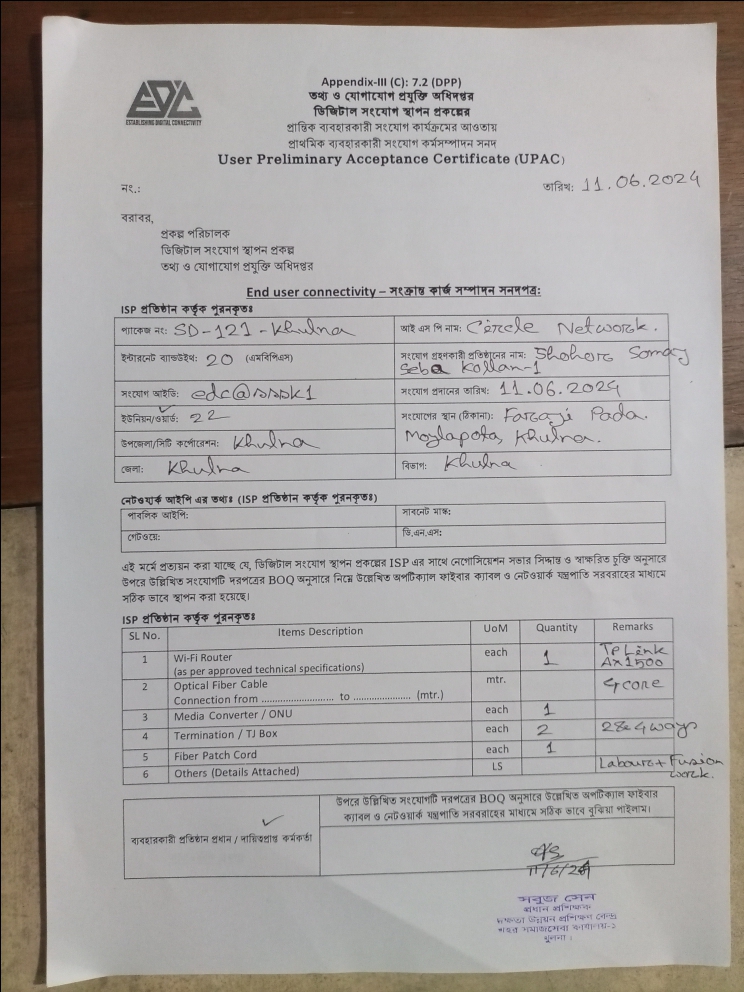 EDC
ESTABLISHING DIGITAL CONNECTIVITY
Appendix-III (C): 7.2 (DPP)
তথ্য ও যোগাযোগ প্রযুক্তি অধিদপ্তর
ডিজিটাল সংযোগ স্থাপন প্রকল্পের
প্রান্তিক ব্যবহারকারী সংযোগ কার্যক্রমের আওতায়
প্রাথমিক ব্যবহারকারী সংযোগ কর্মসম্পাদন সনদ
User Preliminary Acceptance Certificate (UPAC)
নং.: তারিখ: 11.06.2024
বরাবর,
প্রকল্প পরিচালক
ডিজিটাল সংযোগ স্থাপন প্রকল্প
তথ্য ও যোগাযোগ প্রযুক্তি অধিদপ্তর
End user connectivity – সংক্রান্ত কার্জ সম্পাদন সনদপত্র:
ISP প্রতিষ্ঠান কর্তৃক পুরনকৃতঃ
প্যাকেজ নং: SD-121-Khulna আই এস পি নাম: Circle Network.
ইন্টারনেট ব্যান্ডউইথ: 20 (এমবিপিএস) সংযোগ গ্রহণকারী প্রতিষ্ঠানের নাম: Shohor Somaj
Seba Kollan-1
সংযোগ আইডি: edc@sssk1 সংযোগ প্রদানের তারিখ: 11.06.2024
ইউনিয়ন/ওয়ার্ড: 22 সংযোগের স্থান (ঠিকানা): Faraji Pada.
উপজেলা/সিটি কর্পোরেশন: Khulna Moylapota, Khulna.
জেলা: Khulna বিভাগ: Khulna
নেটওয়ার্ক আইপি এর তথ্যঃ (ISP প্রতিষ্ঠান কর্তৃক পুরনকৃতঃ)
পাবলিক আইপি: সাবনেট মাস্ক:
গেটওয়ে: ডি.এন.এস:
এই মর্মে প্রত্যয়ন করা যাচ্ছে যে, ডিজিটাল সংযোগ স্থাপন প্রকল্পের ISP এর সাথে নেগোসিয়েশন সভার সিদ্ধান্ত ও স্বাক্ষরিত চুক্তি অনুসারে
উপরে উল্লিখিত সংযোগটি দরপত্রের BOQ অনুসারে নিম্নে উল্লেখিত অপটিক্যাল ফাইবার ক্যাবল ও নেটওয়ার্ক যন্ত্রপাতি সরবরাহের মাধ্যমে
সঠিক ভাবে স্থাপন করা হয়েছে।
ISP প্রতিষ্ঠান কর্তৃক পুরনকৃতঃ
SL No. Items Description UoM Quantity Remarks
1 Wi-Fi Router each 1 TP Link
(as per approved technical specifications) AX1500
2 Optical Fiber Cable mtr. 4 core
Connection from ............................ to ...................... (mtr.)
3 Media Converter / ONU each 1
4 Termination / TJ Box each 2 2&4 ways
5 Fiber Patch Cord each 1
6 Others (Details Attached) LS Labour + Fusion
work.
উপরে উল্লিখিত সংযোগটি দরপত্রের BOQ অনুসারে উল্লেখিত অপটিক্যাল ফাইবার
ক্যাবল ও নেটওয়ার্ক যন্ত্রপাতি সরবরাহের মাধ্যমে সঠিক ভাবে বুঝিয়া পাইলাম।
ব্যবহারকারী প্রতিষ্ঠান প্রধান / দায়িত্বপ্রাপ্ত কর্মকর্তা
11/6/24
সবুজ সেন
প্রধান প্রশিক্ষক
দক্ষতা উন্নয়ন প্রশিক্ষণ কেন্দ্র
শহর সমাজসেবা কার্যালয়-১
খুলনা।